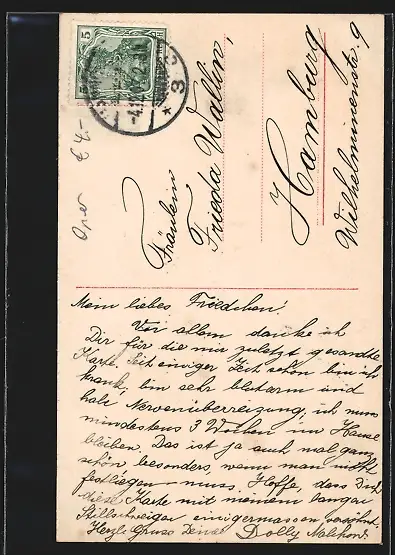 5
3
Oper € 4.-
Fräulein
Frieda Wallin,
Hamburg
Wilhelminenstr. 9
Mein liebes Friedchen!
Vor allem danke ich
Dir für die mir zuletzt gesandte
Karte. Seit einiger Zeit schon bin ich
krank, bin sehr blutarm und
habe Nervenüberreizung, ich muss
mindestens 3 Wochen im Hause
bleiben. Das ist ja auch mal ganz
schön, besonders, wenn man nicht
festliegen muss. Hoffe, dass Dich
diese Karte mit meinem langen
Stillschweigen einigermassen versöhnt.
Herzl. Gruss Deine Dolly